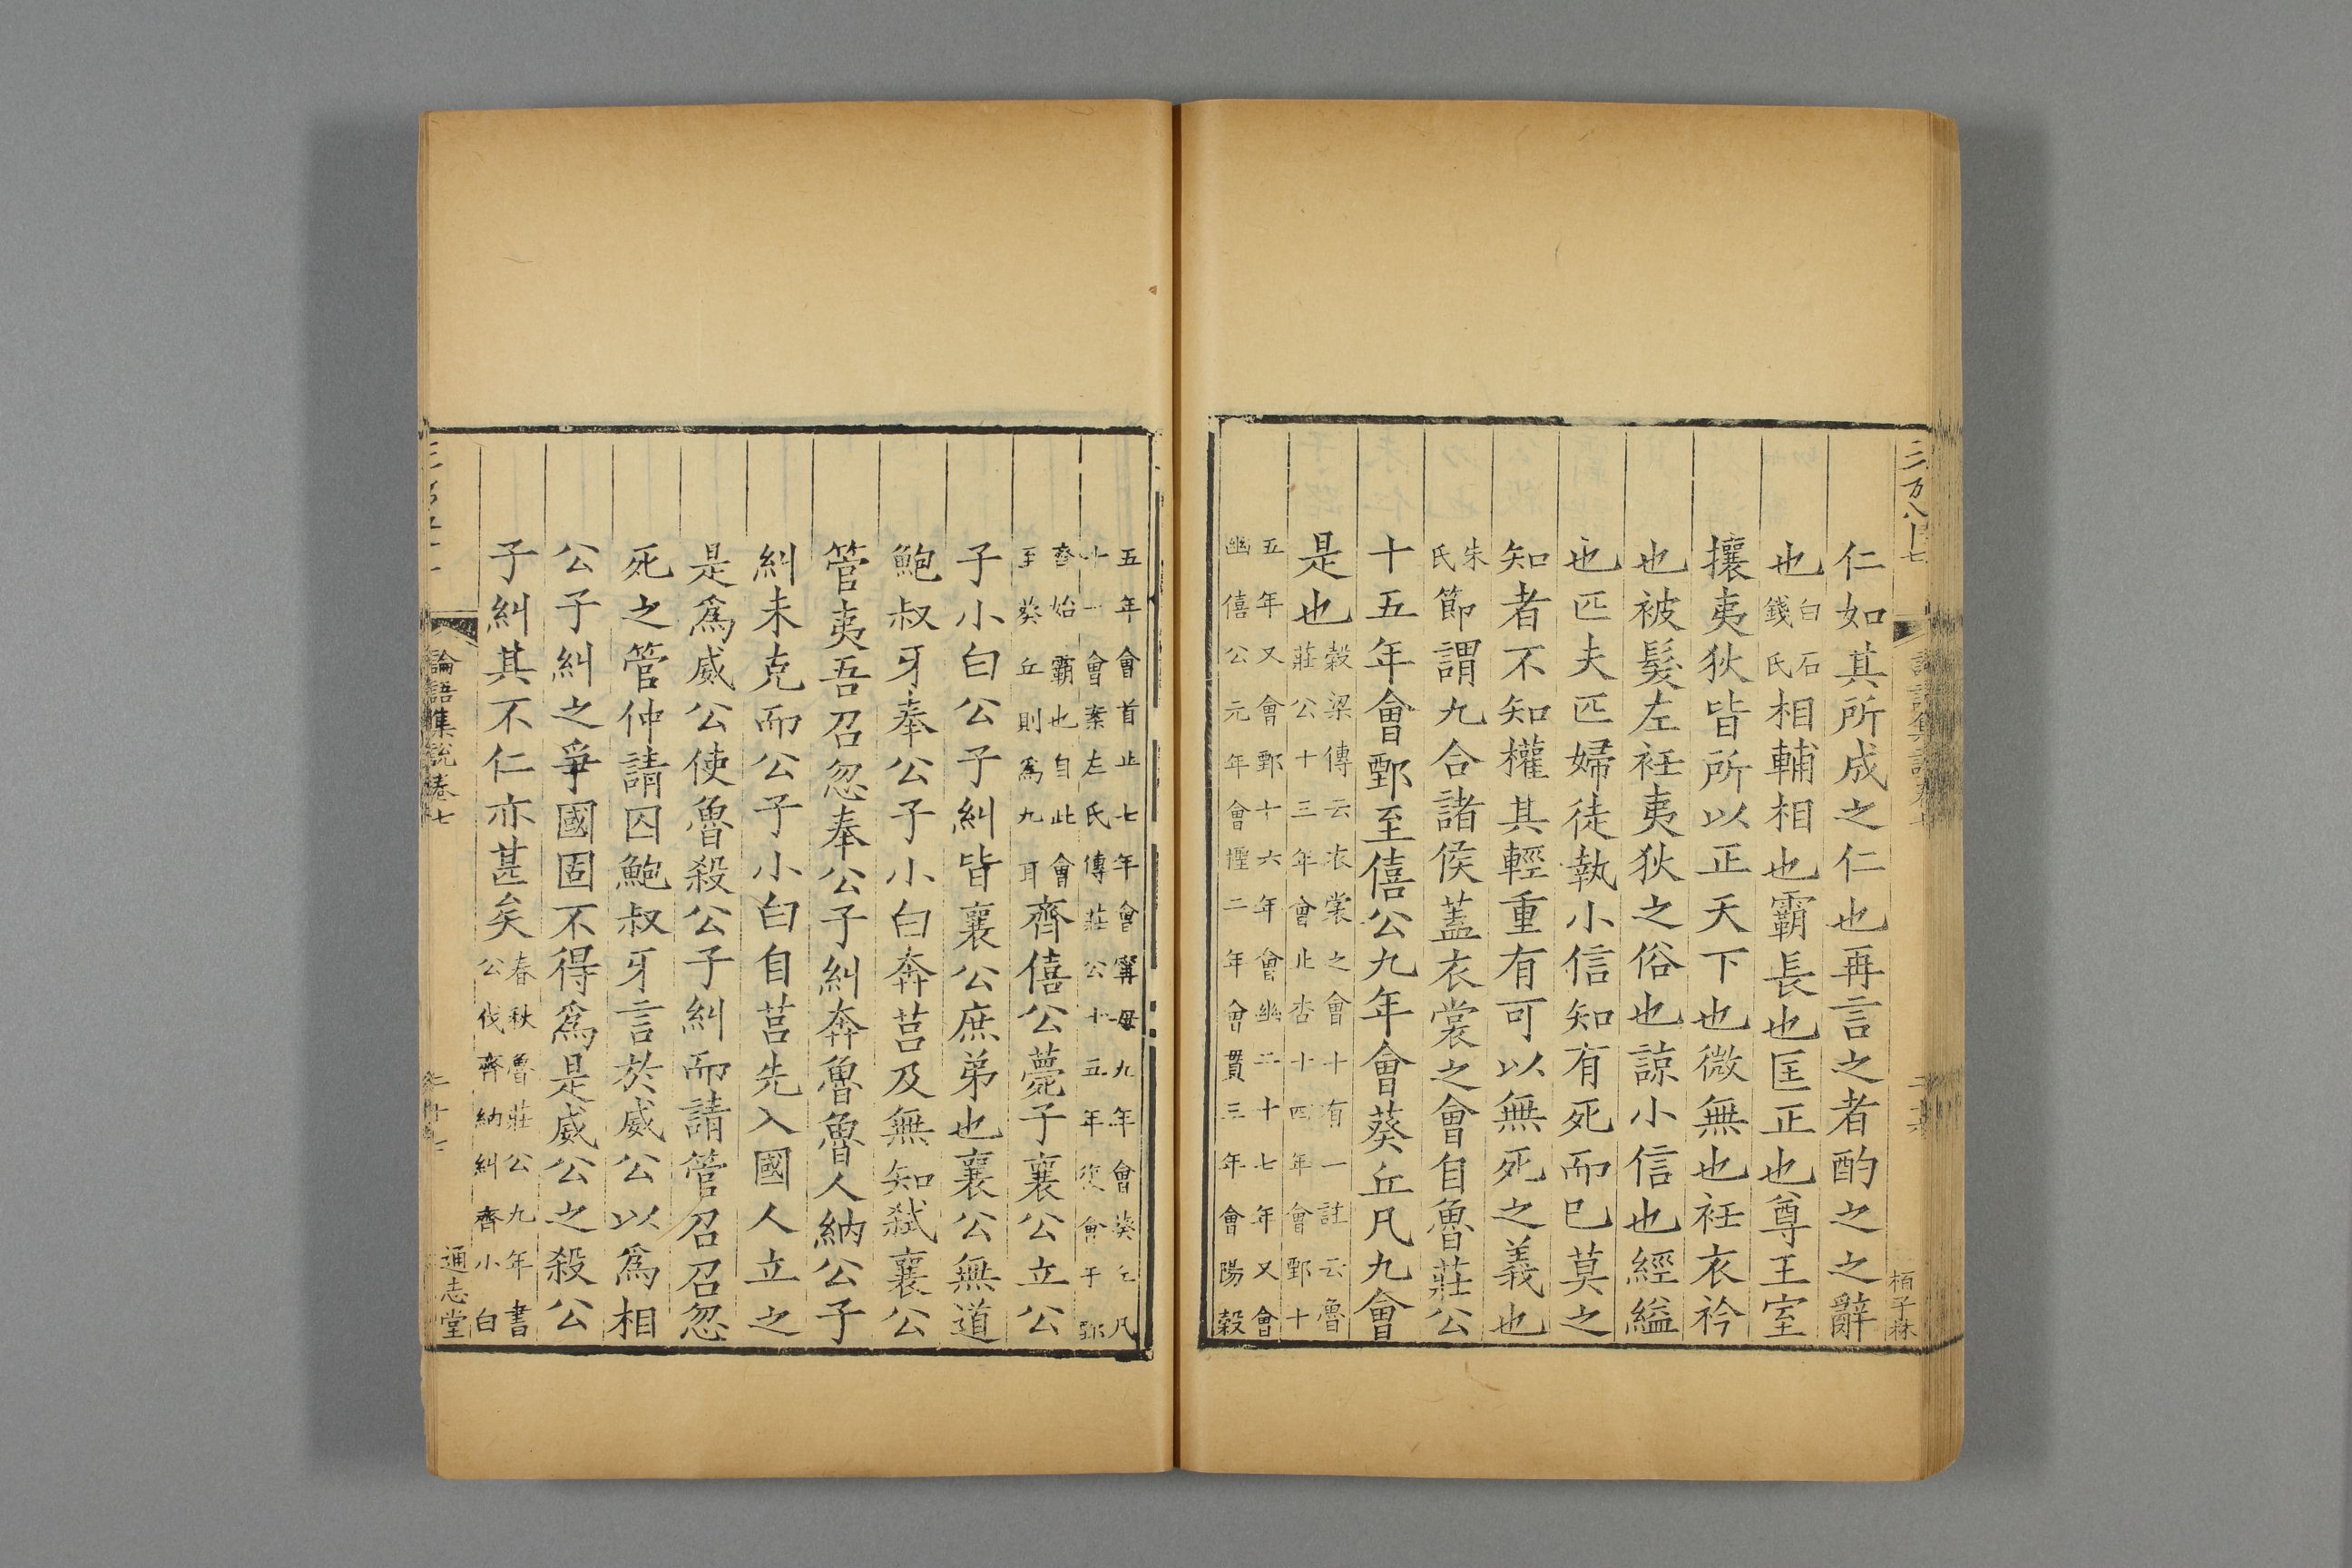 仁如其所成之仁也再言之者酌之之辭
也白石錢氏相輔相也霸長也匡正也尊王室
攘夷狄皆所以正天下也微無也衽衣衿
也被髮左衽夷狄之俗也諒小信也經縊
也匹夫匹婦徒執小信知有死而已莫之
知者不知權其輕重有可以無死之義也
朱氏節謂九合諸侯蓋衣裳之會自魯莊公
十五年會鄄至僖公九年會葵丘凡九會
是也榖梁傳云衣裳之會十有一註云魯莊公十三年會北杏十四年會鄄十
五年又會鄄十六年會幽二十七年又會幽僖公元年會檉二年會貫三年會陽榖
五年會首止七年會甯母九年會葵丘凡十一會案左氏傳莊公十五年復會于鄄
齊始霸也自此會至葵丘則爲九耳齊僖公薨子襄公立公
子小白公子糾皆襄公庶弟也襄公無道
鮑叔牙奉公子小白奔莒及無知弒襄公
管夷吾召忽奉公子糾奔魯魯人納公子
糾未克而公子小白自莒先入國人立之
是爲威公使魯殺公子糾而請管召召忽
死之管仲請囚鮑叔牙言於威公以爲相
公子糾之爭國固不得爲是威公之殺公
子糾其不仁亦甚矣春秋魯莊公九年書公伐齊納糾齊小白
論語集説卷七
通志堂